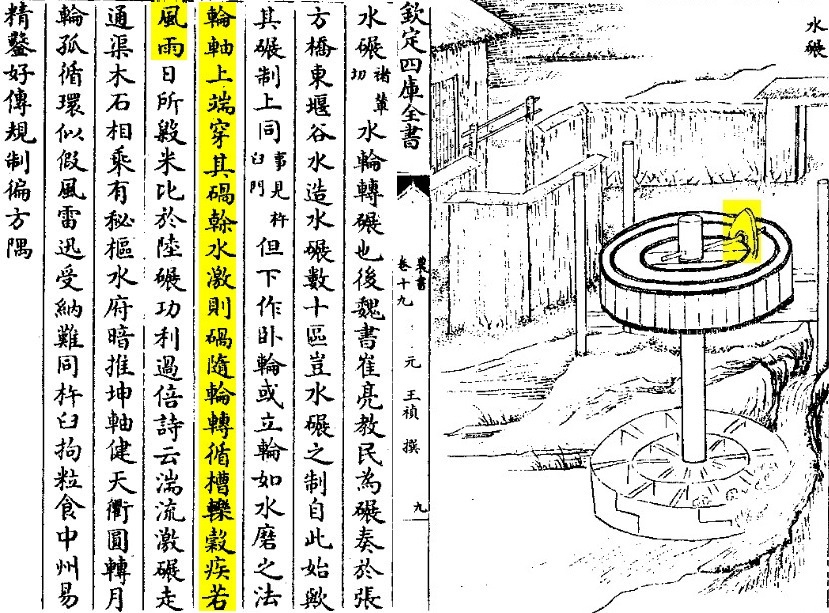 水碾
欽定四庫全書
農書
卷十九
元 王禎 撰
九
水碾褚輦切水輪轉碾也後魏書崔亮教民為碾奏於張
方橋東堰谷水造水碾數十區豈水碾之制自此始歟
其碾制上同事見杵臼門但下作卧輪或立輪如水磨之法
輪軸上端穿其碢榦水激則碢隨輪轉循槽轢穀疾若
風雨日所毇米比於陸碾功利過倍詩云湍流激碾走
通渠木石相乘有秘樞水府暗推坤軸健天衢圓轉月
輪孤循環似假風雷迅受納難同杵臼拘粒食中州易
精鑿好傳規制徧方隅